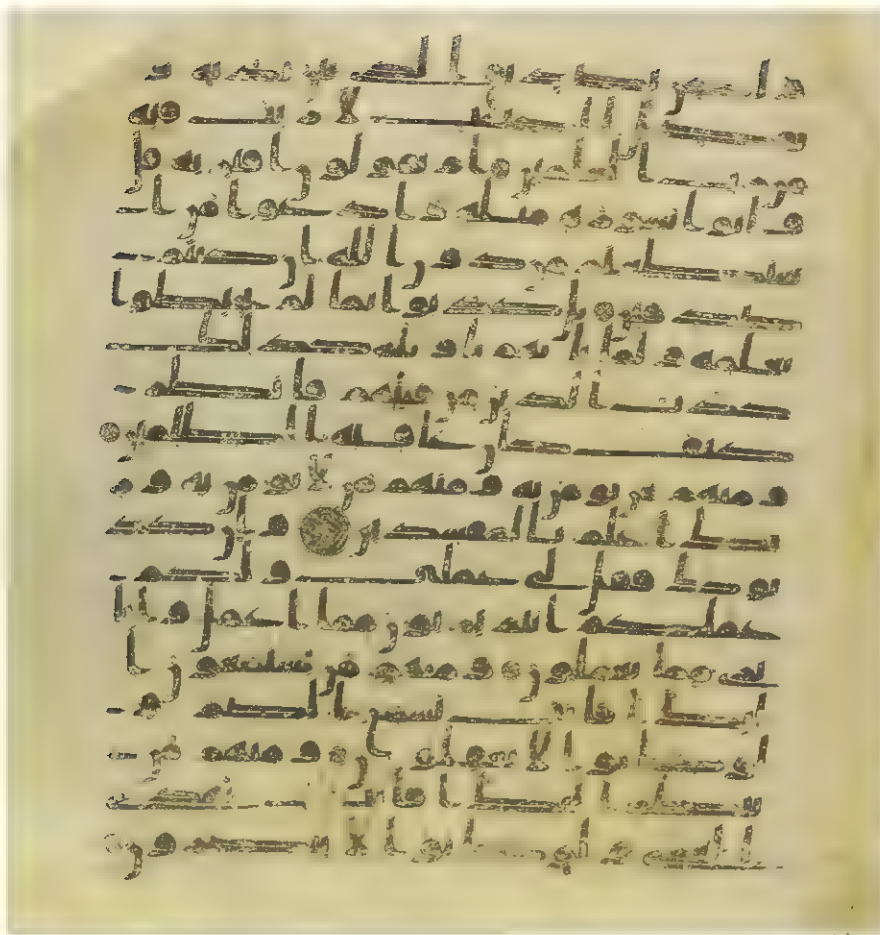 ولكن تصديق الذي بين يديه و
تفصيل الكتب لا ريب فيه
من رب العلمين ام يقولون افتريه قل
فاتوا بسورة مثله وادعوا من ا
ستطعتم من دون الله ان كنتم
صدقين بل كذبوا بما لم يحيطوا
بعلمه ولما ياتهم تاويله كذلك
كذب الذين من قبلهم فانظر
كيف كان عقبة الظلمين
ومنهم من يومن به ومنهم من لا يومن به ور
بك اعلم بالمفسدين وان كذ
بوك فقل لي عملي ولكم
عملكم انتم بريون مما اعمل وانا
بري مما تعملون ومنهم من يستمعون ا
ليك افانت تسمع الصم و
لو كانوا لا يعقلون ومنهم من
ينظر اليك افانت تهدي
العمي ولو كانوا لا يبصرون